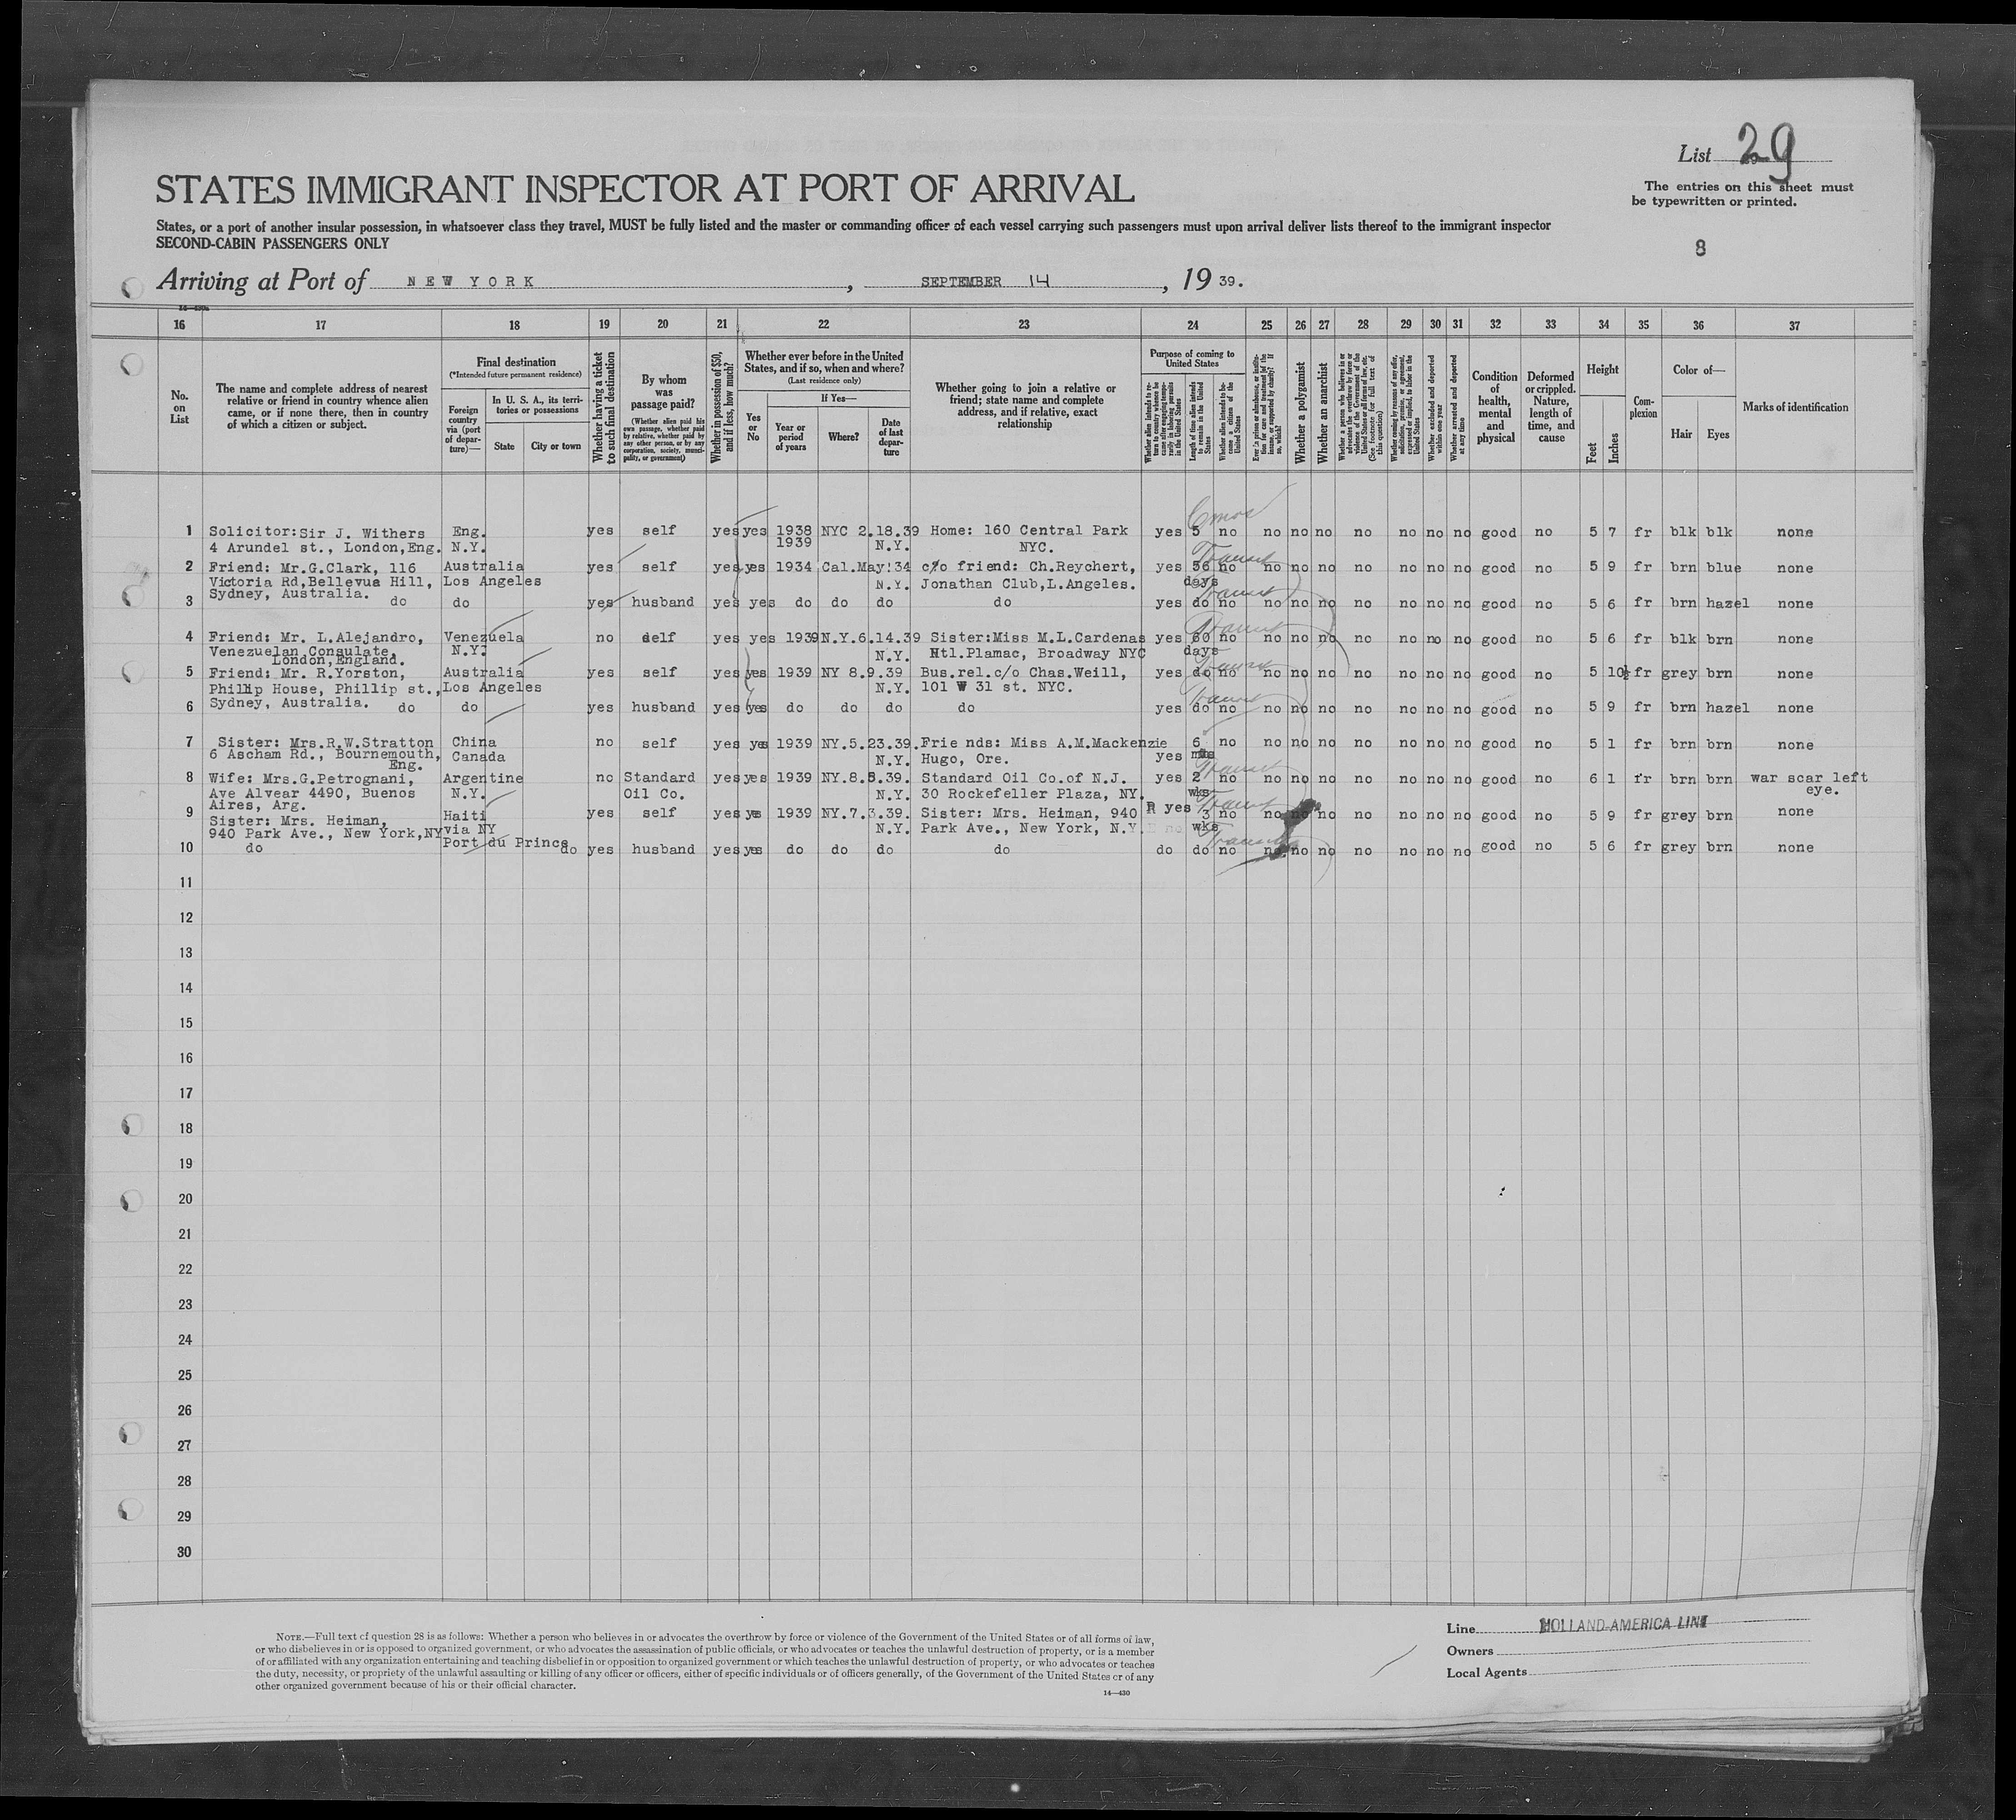 List 29
The entries on this sheet must
be typewritten or printed.
STATES IMMIGRANT INSPECTOR AT PORT OF ARRIVAL
States, or a port of another insular possession, in whatsoever class they travel, MUST be fully listed and the master or commanding officer of each vessel carrying such passengers must upon arrival deliver lists thereof to the immigrant inspector
SECOND-CABIN PASSENGERS ONLY
8
Arriving at Port of NEW YORK, SEPTEMBER 14, 1939.
16 17 18 19 20 21 22 23 24 25 26 27 28 29 30 31 32 33 34 35 36 37
No. on List
The name and complete address of nearest relative or friend in country whence alien came, or if none there, then in country of which a citizen or subject.
Final destination
(*Intended future permanent residence)
Foreign country via (port of departure)—
In U. S. A., its territories or possessions
State City or town
Whether having a ticket to such final destination
By whom was passage paid?
(Whether alien paid his own passage, whether paid by relative, whether paid by any other person, or by any corporation, society, municipality, or government)
Whether in possession of $50, and if less, how much?
Whether ever before in the United States, and if so, when and where?
(Last residence only)
Yes or No
If Yes—
Year or period of years Where? Date of last departure
Whether going to join a relative or friend; state name and complete address, and if relative, exact relationship
Purpose of coming to United States
Whether alien intends to return to country whence he came after engaging temporarily in laboring pursuits in the United States
Length of time alien intends to remain in the United States
Whether alien intends to become a citizen of the United States
Ever in prison or almshouse, or institution for care and treatment of the insane, or supported by charity? If so, which?
Whether a polygamist
Whether an anarchist
Whether a person who believes in or advocates the overthrow by force or violence of the Government of the United States or all forms of law, etc. (See footnote for full text of this question)
Whether coming by reason of any offer, solicitation, promise, or agreement, expressed or implied, to labor in the United States
Whether excluded and deported within one year
Whether arrested and deported at any time
Condition of health, mental and physical
Deformed or crippled. Nature, length of time, and cause
Height
Feet Inches
Complexion
Color of—
Hair Eyes
Marks of identification
6mos
1 Solicitor: Sir J. Withers Eng. yes self yes yes 1938 NYC 2.18.39 Home: 160 Central Park yes 5 no no no no no no no no good no 5 7 fr blk blk none
4 Arundel st., London,Eng. N.Y. 1939 N.Y. NYC.
Transit
2 Friend: Mr.G.Clark, 116 Australia yes self yes yes 1934 Cal.May'34 c/o friend: Ch.Reychert, yes 56 no no no no no no no no good no 5 9 fr brn blue none
Victoria Rd,Bellevue Hill, Los Angeles N.Y. Jonathan Club,L.Angeles. days
Sydney, Australia.
Transit
3 do do yes husband yes yes do do do do yes do no no no no no no no no good no 5 6 fr brn hazel none
Transit
4 Friend: Mr. L.Alejandro, Venezuela no delf yes yes 1939 N.Y.6.14.39 Sister:Miss M.L.Cardenas yes 60 no no no no no no no no good no 5 6 fr blk brn none
Venezuelan Consulate, N.Y. N.Y. Htl.Plamac, Broadway NYC days
London,England.
Transit
5 Friend: Mr. R.Yorston, Australia yes self yes yes 1939 NY 8.9.39 Bus.rel.c/o Chas.Weill, yes do no no no no no no no no good no 5 10½ fr grey brn none
Phillip House, Phillip st., Los Angeles N.Y. 101 W 31 st. NYC.
Sydney, Australia.
Transit
6 do do yes husband yes yes do do do do yes do no no no no no no no no good no 5 9 fr brn hazel none
7 Sister: Mrs.R.W.Stratton China no self yes yes 1939 NY.5.23.39. Friends: Miss A.M.Mackenzie 6 no no no no no no no no good no 5 1 fr brn brn none
6 Ascham Rd., Bournemouth, Canada N.Y. Hugo, Ore. yes
Eng.
Transit
8 Wife: Mrs.G.Petrognani, Argentine no Standard yes yes 1939 NY.8.5.39. Standard Oil Co.of N.J. yes 2 no no no no no no no no good no 6 1 fr brn brn war scar left
Ave Alvear 4490, Buenos N.Y. Oil Co. N.Y. 30 Rockefeller Plaza, NY. wks eye.
Aires, Arg.
Transit
9 Sister: Mrs. Heiman, Haiti yes self yes ye 1939 NY.7.3.39. Sister: Mrs. Heiman, 940 R yes 3 no no no no no no no no good no 5 9 fr grey brn none
940 Park Ave., New York,NY via NY N.Y. Park Ave., New York, N.Y. wks
Port du Prince
Transit
10 do do yes husband yes yes do do do do do do no no no no no no no no good no 5 6 fr grey brn none
11
12
13
14
15
16
17
18
19
20
21
22
23
24
25
26
27
28
29
30
NOTE.—Full text of question 28 is as follows: Whether a person who believes in or advocates the overthrow by force or violence of the Government of the United States or of all forms of law,
or who disbelieves in or is opposed to organized government, or who advocates the assassination of public officials, or who advocates or teaches the unlawful destruction of property, or is a member
of or affiliated with any organization entertaining and teaching disbelief in or opposition to organized government or which teaches the unlawful destruction of property, or who advocates or teaches
the duty, necessity, or propriety of the unlawful assaulting or killing of any officer or officers, either of specific individuals or of officers generally, of the Government of the United States or of any
other organized government because of his or their official character.
14—430
Line HOLLAND-AMERICA LINE
Owners
Local Agents